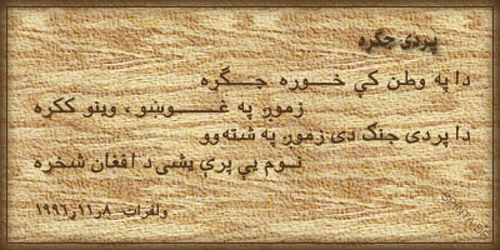 پردۍ جگړه
دا په وطن کې خـوره جـگړه
زموږ په غـوښو ، وينو ککړه
دا پردی جنګ دی زموږ په شته وو
نـوم يې پرې يښی د افغان شخړه
ولفرات ۸ر۱۱ر۱۹۹٦